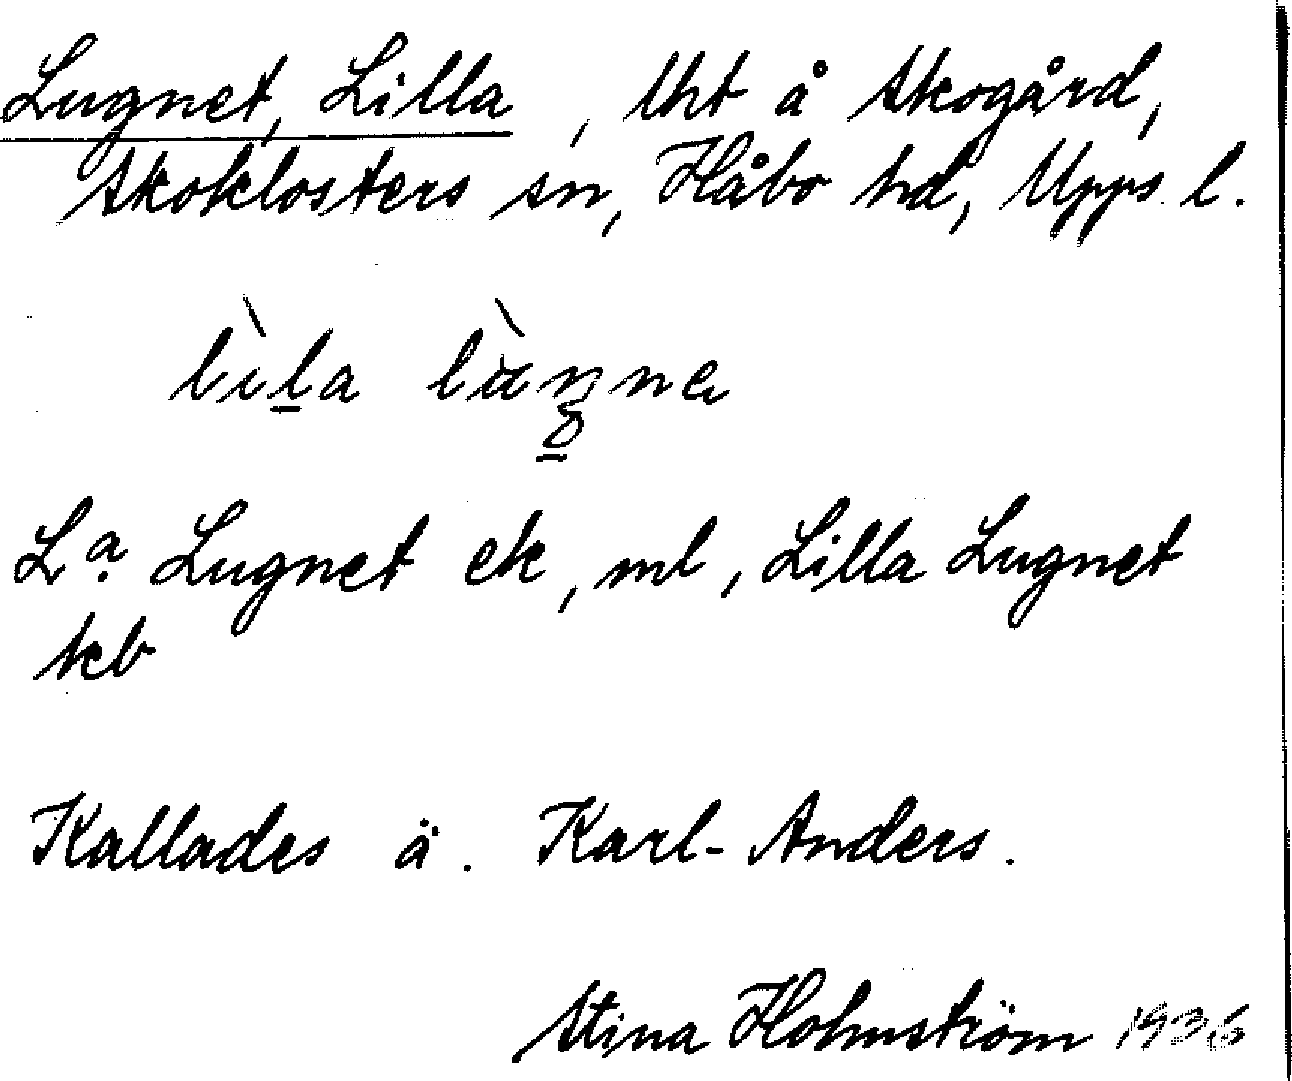 Lugnet, Lilla, lht å Skogård,
Skoklosters sn, Håbo hd, Upps. l.
Lª. Lugnet ek, ml, Lilla Lugnet
kb
Kallades ä. Karl-Anders.
Stina Holmström 1936